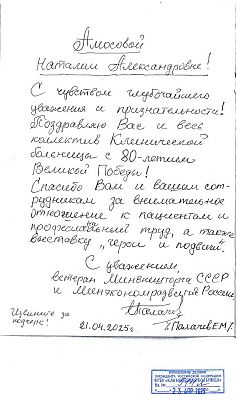 Амосовой
Наталии Александровне!
С чувством глубочайшего
уважения и признательности!
Поздравляю Вас и весь
коллектив Клинической
больницы с 80-летием
Великой Победы!
Спасибо Вам и вашим сот-
рудникам за внимательное
отношение к пациентам и
профессиональный труд, а также
выставку „герои и подвиги".
С уважением,
ветеран Минвнешторга СССР
и Минэкономразвития России,
Извините за
подчерк!
21.04.2025г.
/Палачев Е.М./
УПРАВЛЕНИЕ ДЕЛАМИ
ПРЕЗИДЕНТА РОССИЙСКОЙ ФЕДЕРАЦИИ